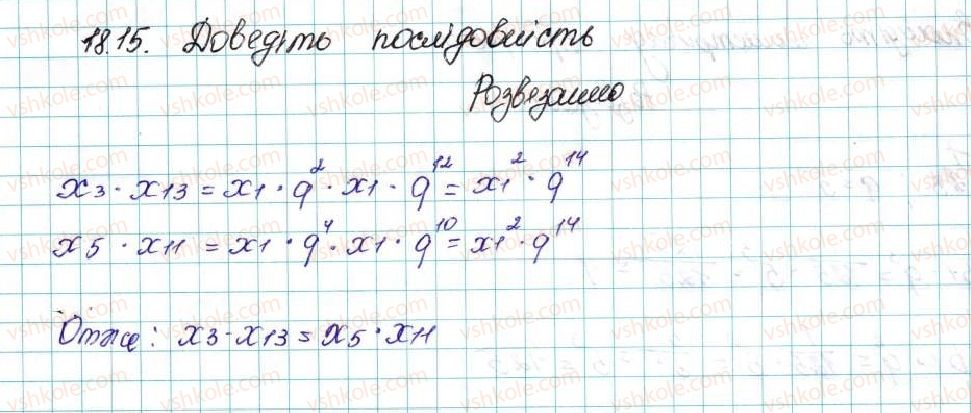 18.15. Доведіть послідовність
Розвезанно
x₃ · x₁₃ = x₁ · q² · x₁ · q¹² = x₁² · q¹⁴
x₅ · x₁₁ = x₁ · q⁴ · x₁ · q¹⁰ = x₁² · q¹⁴
Отже: x₃ · x₁₃ = x₅ · x₁₁